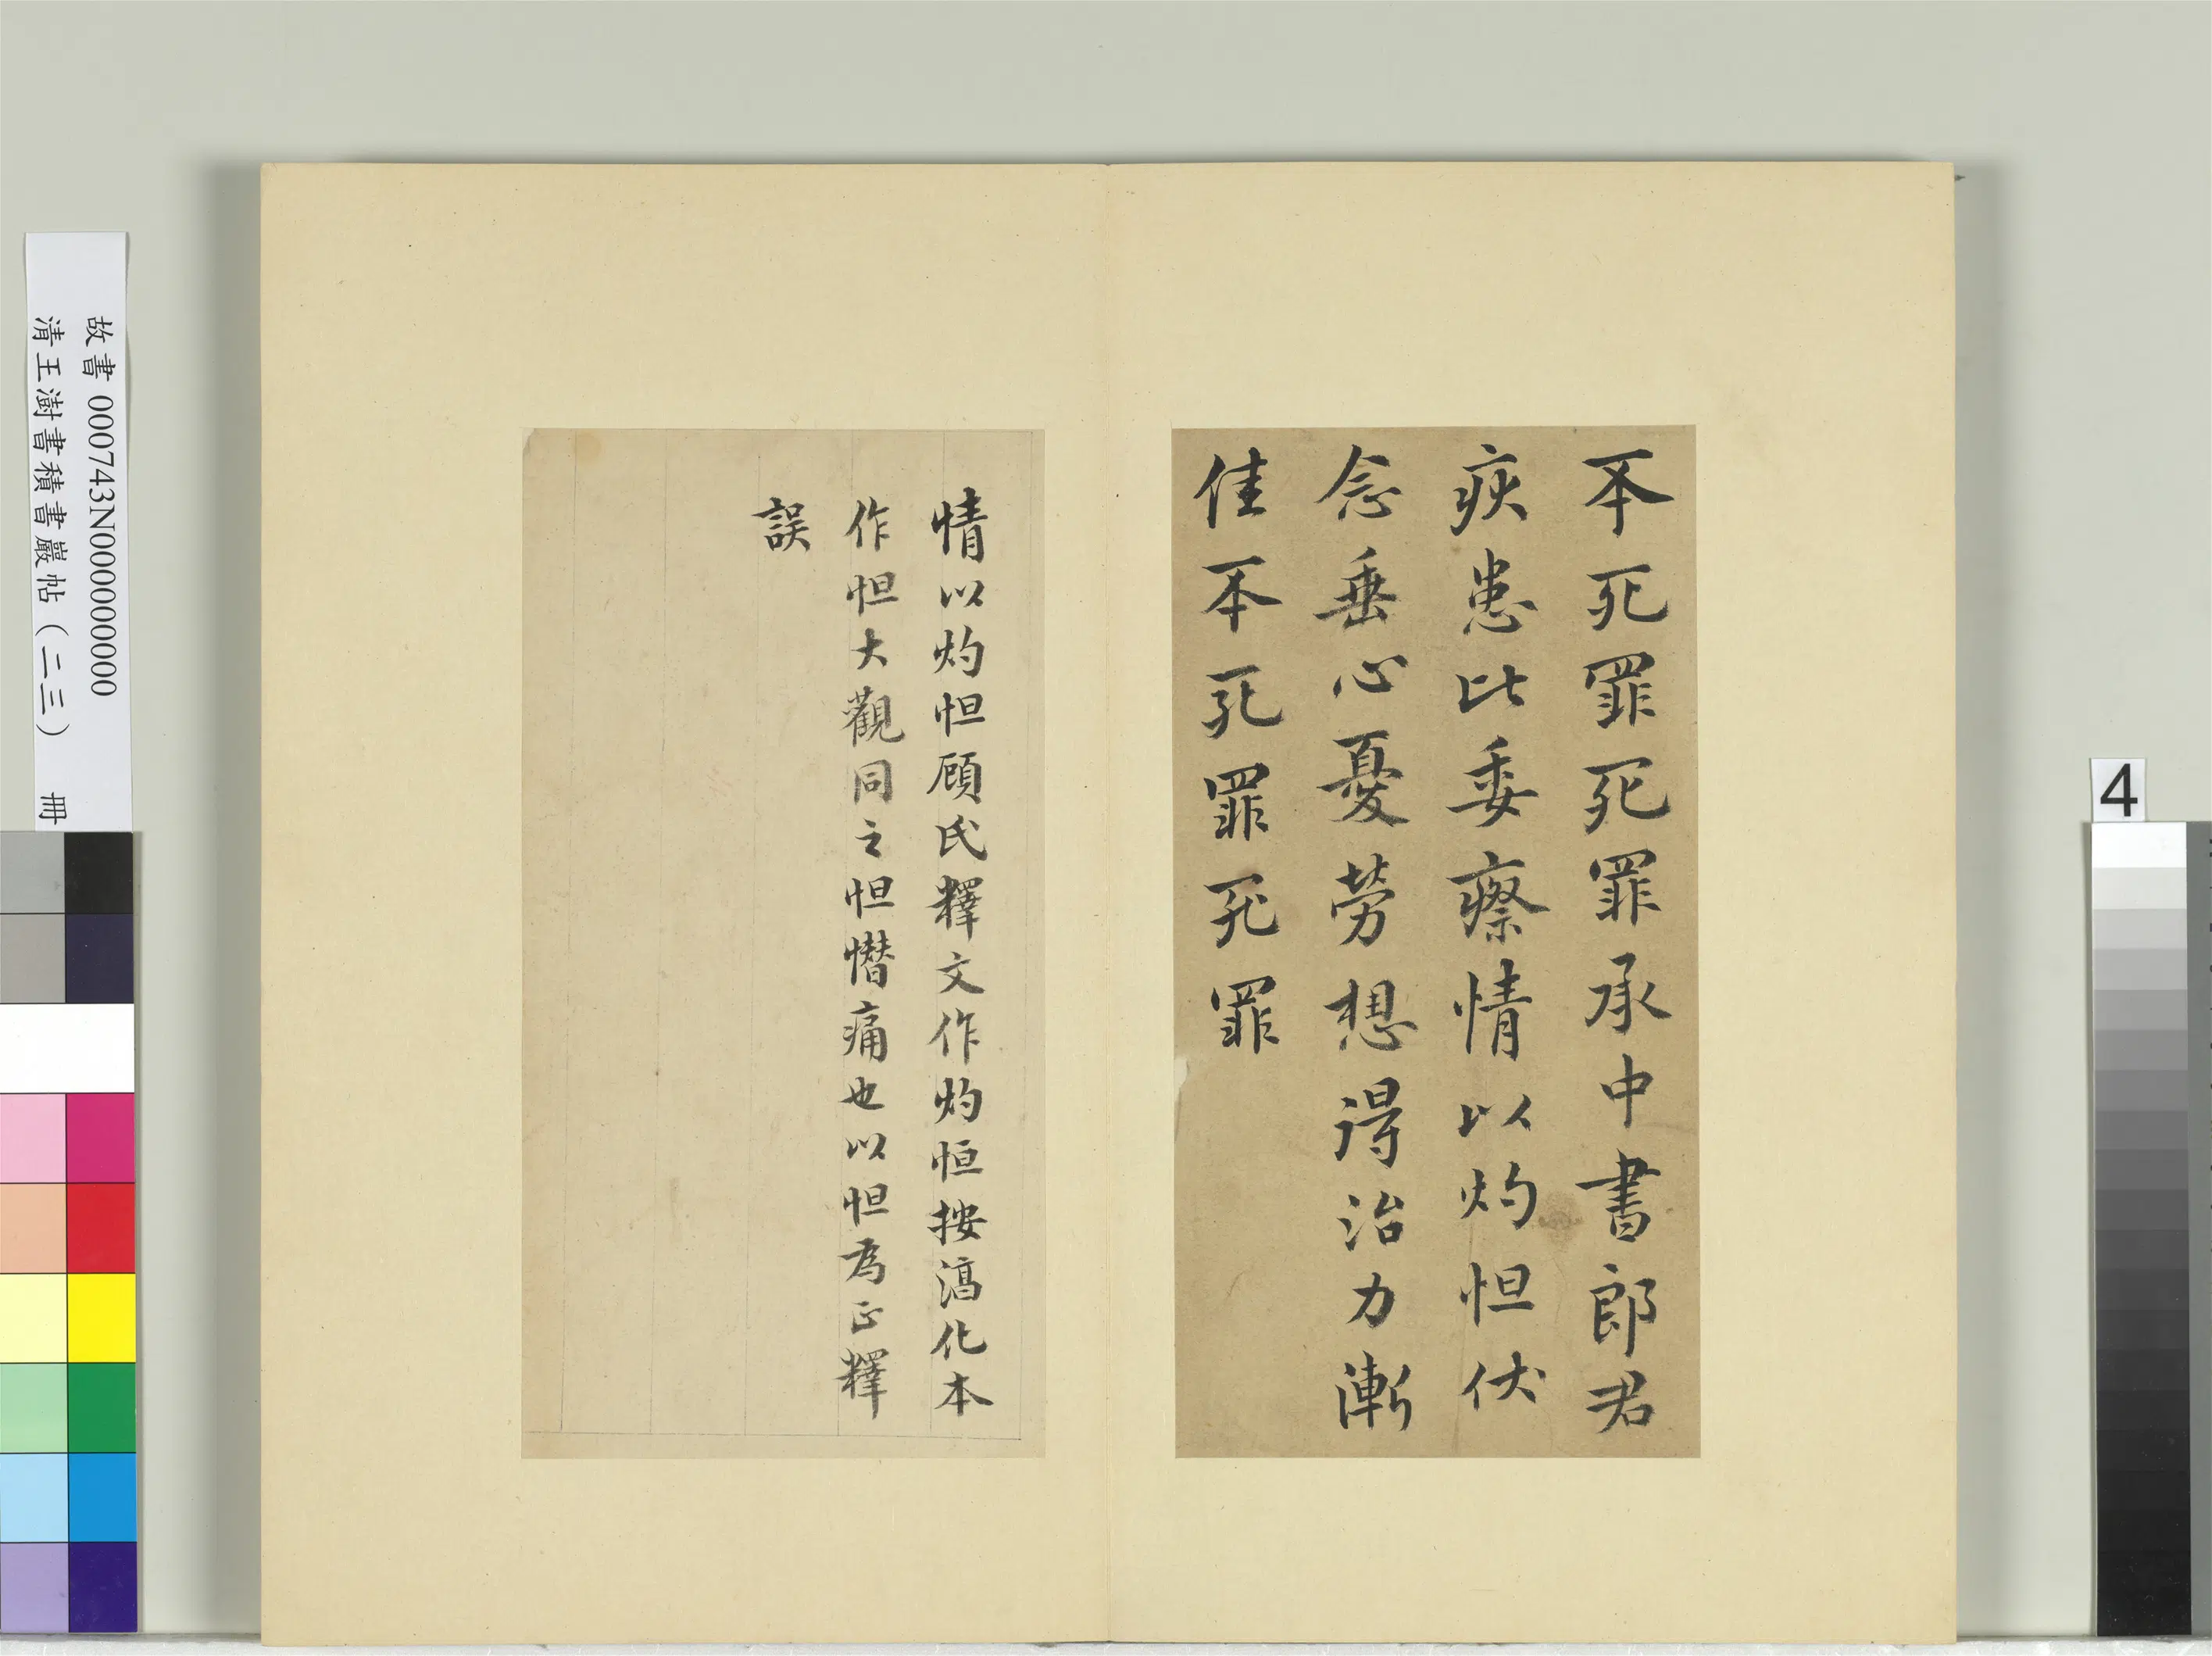 不死罪死罪承中書郎君
疢患比委瘵情以灼怛伏
念垂心憂勞想得治力漸
佳不死罪死罪
情以灼怛顧氏釋文作灼恒按淳化本
作怛大觀同之怛憯痛也以怛為正釋
誤
故書 000743N000000000
清王澍書積書巖帖（二三） 冊
4